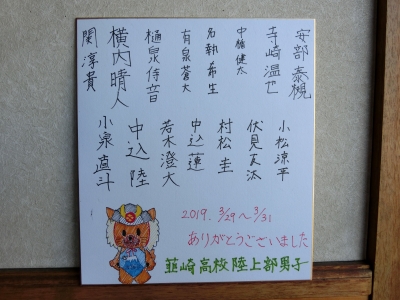 安部 泰槻
寺崎 温也
中嶋 健太
名執 希生
有泉 蒼大
樋泉 侍音
横内 晴人
関 淳貴
小松 涼平
伏見 友汰
村松 圭
中込 蓮
若木 澄大
中込 陸
小泉 直斗
2019. 3/29〜3/31
ありがとうございました
韮崎高校陸上部男子